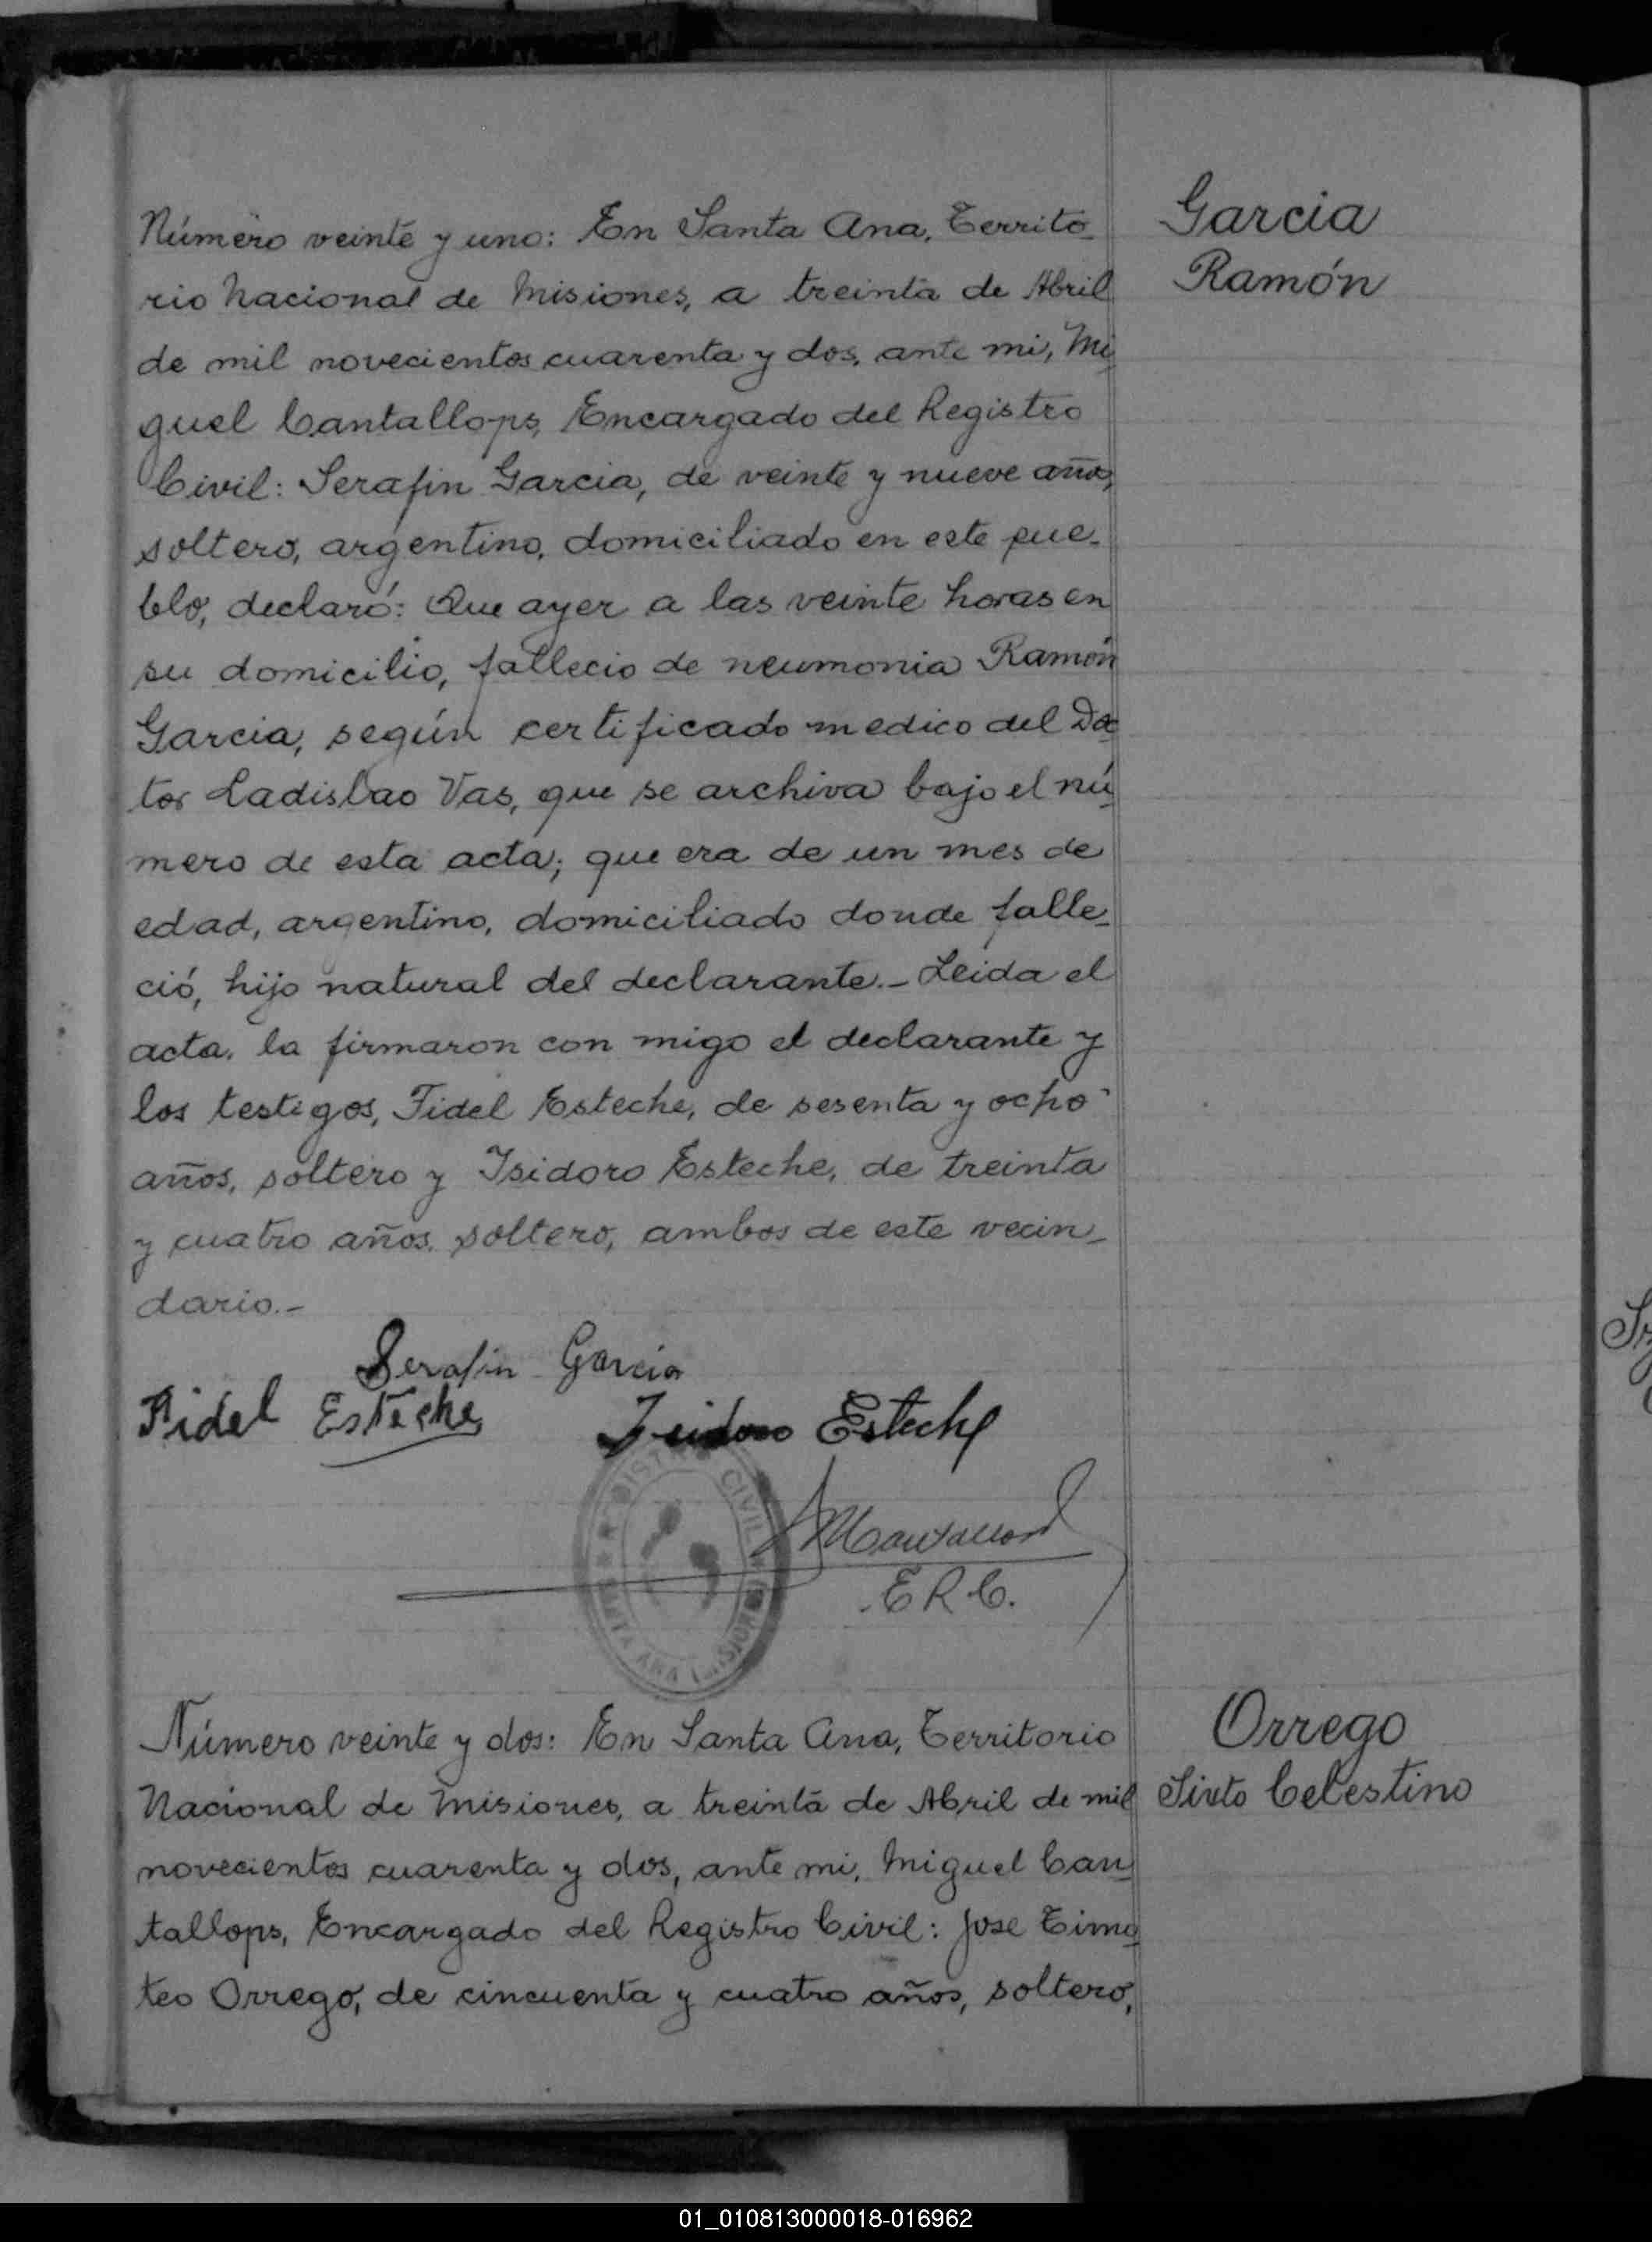 Garcia
Ramón
Número veinte y uno: En Santa Ana, Territo-
rio Nacional de Misiones, a treinta de Abril
de mil novecientos cuarenta y dos, ante mi, Mi-
guel Cantallops, Encargado del Registro
Civil: Serafin Garcia, de veinte y nueve años,
soltero, argentino, domiciliado en este pue-
blo, declaró: Que ayer a las veinte horas en
su domicilio, fallecio de neumonia Ramón
Garcia, según certificado medico del Doc-
tor Ladislao Vas, que se archiva bajo el nú-
mero de esta acta; que era de un mes de
edad, argentino, domiciliado donde falle-
ció, hijo natural del declarante.- Leida el
acta, la firmaron con migo el declarante y
los testigos, Fidel Esteche, de sesenta y ocho
años, soltero y Isidoro Esteche, de treinta
y cuatro años, soltero, ambos de este vecin-
dario.-
Serafin Garcia
Fidel Esteche Isidoro Esteche
CIVIL
SANTA ANA MISIONES
E R C.
Orrego
Sixto Celestino
Número veinte y dos: En Santa Ana, Territorio
Nacional de Misiones, a treinta de Abril de mil
novecientos cuarenta y dos, ante mi, Miguel Can-
tallops, Encargado del Registro Civil: Jose Timo-
teo Orrego, de cincuenta y cuatro años, soltero,
01_010813000018-016962